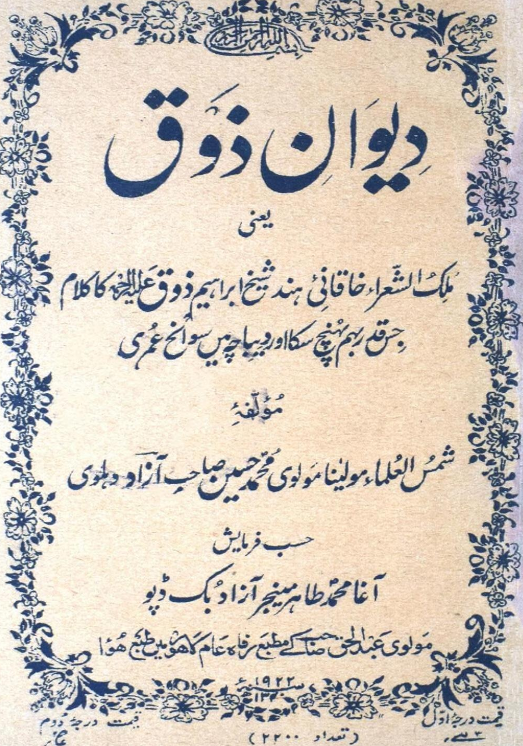 بسم اللہ الرحمن الرحیم
دیوانِ ذَوق
یعنی
مُلک الشّعراء خاقانیٔ ہند شیخ ابراہیم ذوق علیہ الرحمۃ کا کلام
جس قدر بہم پہنچ سکا اور دیباچہ میں سوانح عمری
مؤلفۂ
شمس العُلماء مولینا مولوی محمد حسین صاحب آزاد دہلوی
حسب فرمایش
آغا محمد طاہر مینجر آزاد بک ڈپو
مولوی عبدالحق صاحب کے مطبع رفاہ عام لاہور میں طبع ہوا
۱۹۲۲ء
قیمت درجہ اوّل
قیمت درجہ دوم
(تعداد ۲۲۰۰)